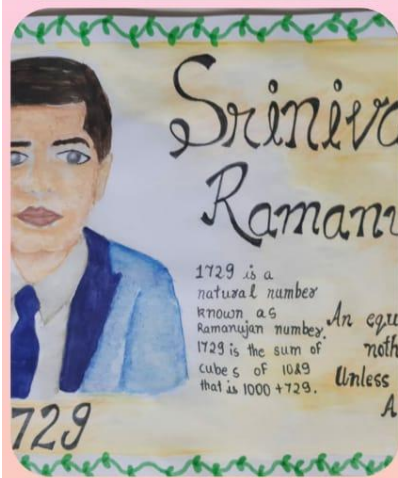 Sriniva
Ramanu
1729 is a
natural number
known as
Ramanujan number.
1729 is the sum of
cubes of 10&9
that is 1000 +729.
An equ
noth
Unless
A
729